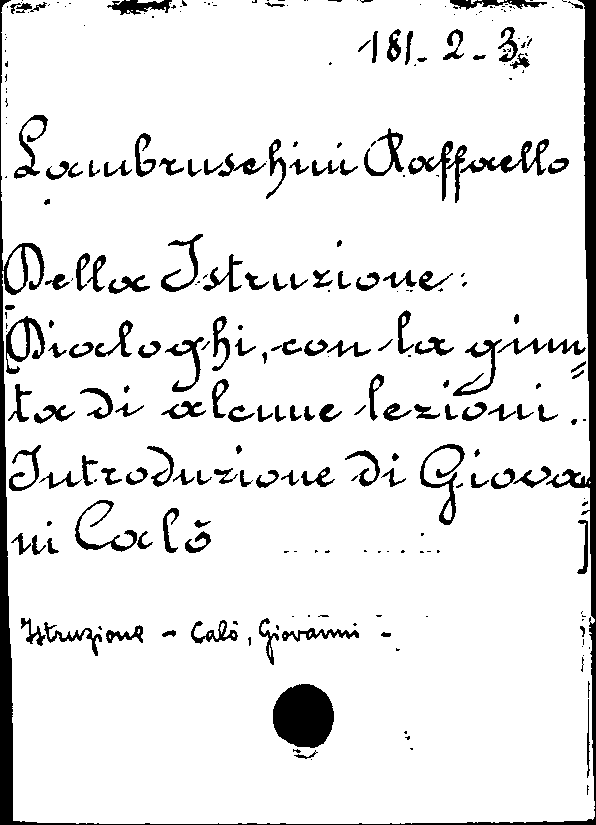 181-2-3
Lambruschini Raffaello
Della Istruzione:
Dialoghi, con la giun=
ta di alcune lezioni.
Introduzione di Giovan=
ni Calò
]
Istruzione - Calò, Giovanni -